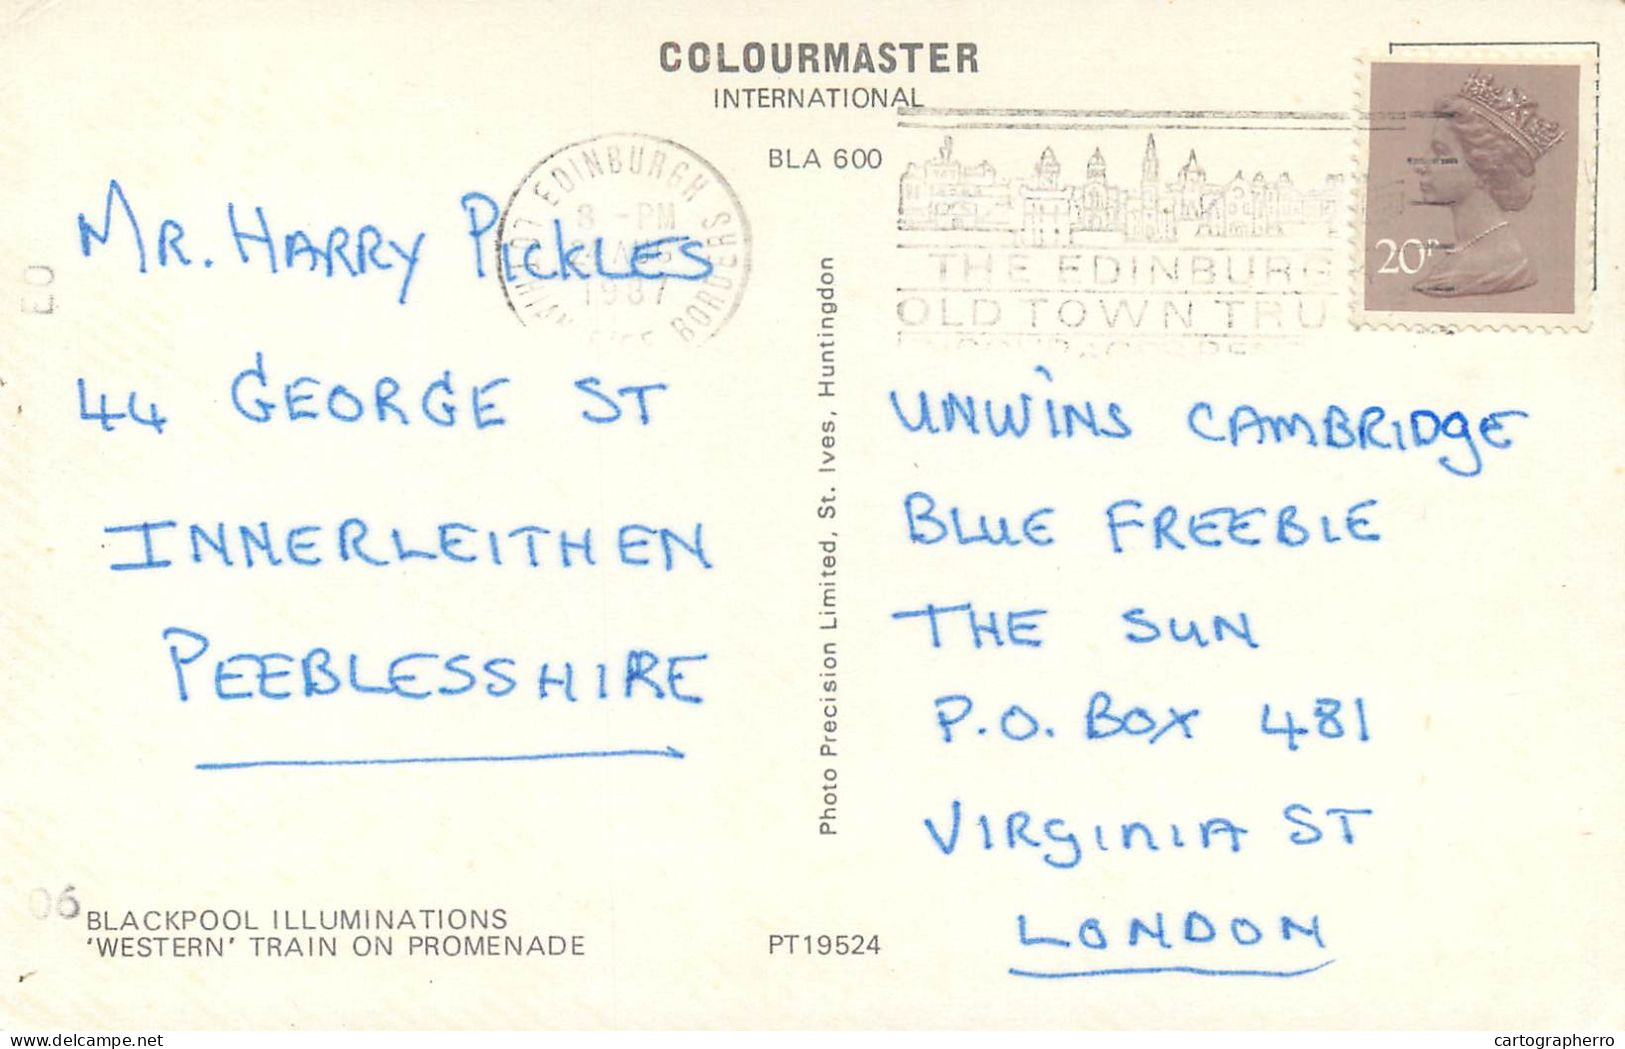 COLOURMASTER
INTERNATIONAL
BLA 600
LOTHIAN EDINBURGH BORDERS
8 - PM
AUG
1987
THE EDINBURG
OLD TOWN TRU
20P
MR. HARRY PICKLES
44 GEORGE ST
INNERLEITHEN
PEEBLESSHIRE
EO
06
BLACKPOOL ILLUMINATIONS
'WESTERN' TRAIN ON PROMENADE
Photo Precision Limited, St. Ives, Huntingdon
PT19524
UNWINS CAMBRIDGE
BLUE FREEBIE
THE SUN
P.O. BOX 481
VIRGINIA ST
LONDON
delcampe.net
cartographerro